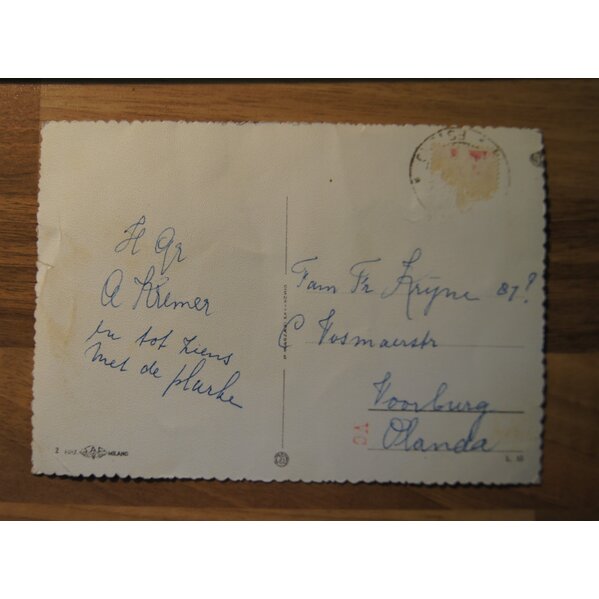 H Gr
A Kremer
en tot ziens
met de
Fam Fr Kryne 87?
C Vosmaerstr
Voorburg
Olanda
2
MILANO